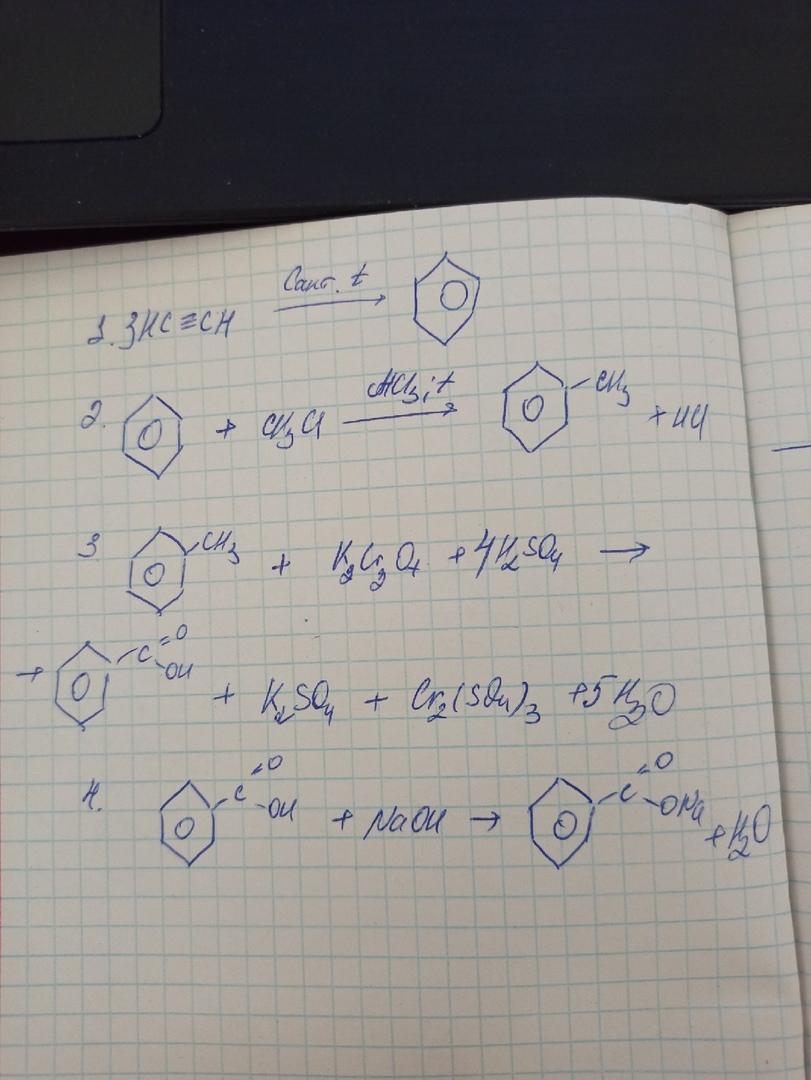 1. 3HC≡CH Cакт. t
2. + CH₃Cl AlCl₃, t CH₃ + HCl
3 CH₃ + K₂Cr₂O₇ + 4H₂SO₄ →
→ C=O OH + K₂SO₄ + Cr₂(SO₄)₃ + 5H₂O
4. C=O OH + NaOH → C=O ONa + H₂O